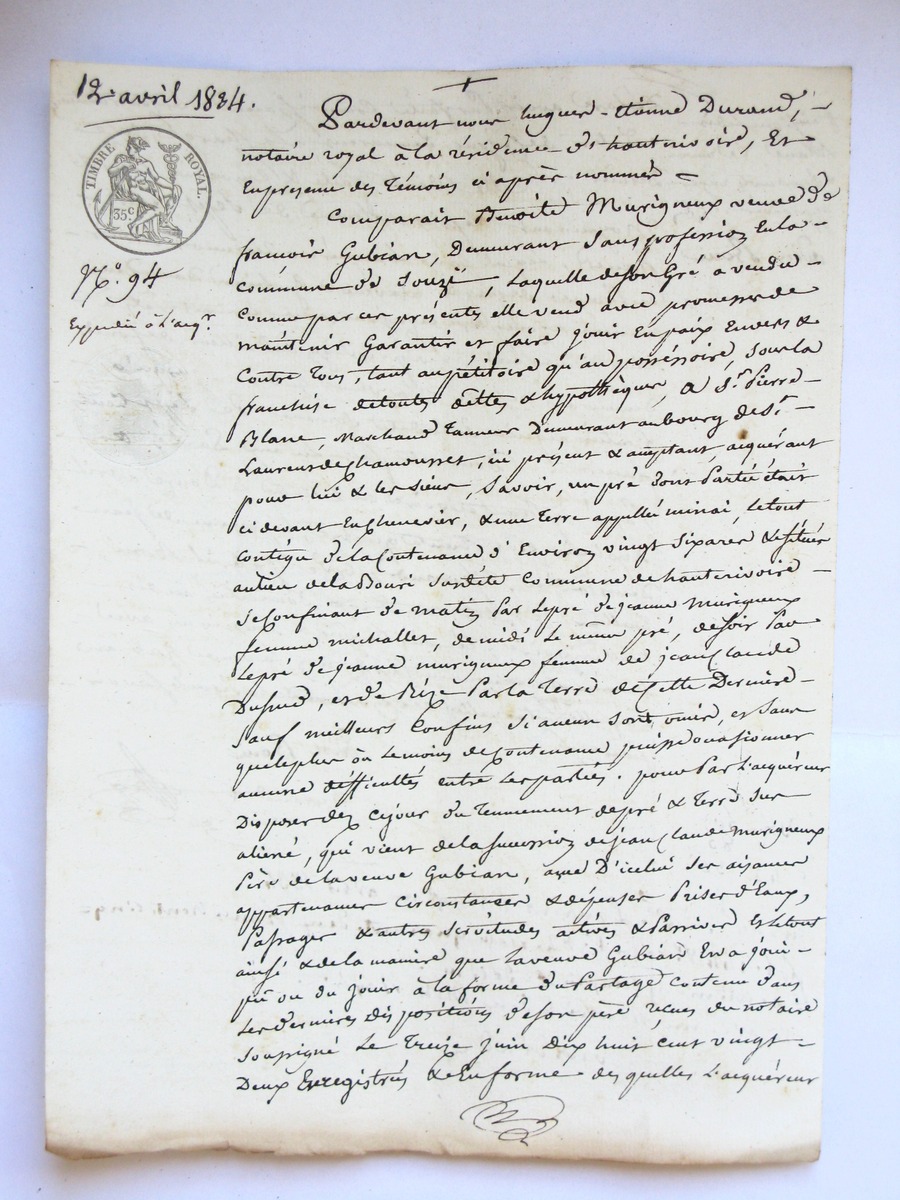 12 avril 1834.
TIMBRE ROYAL.
35c
N.o 94
Expédié à l'acqr
Pardevant nous hugues-étienne Durand,
notaire royal à la résidence d'hauterivoire, Et
En presence des témoins ci après nommés
Comparait Benoite Murigneux veuve de
françois Gubian, Demeurant sans profession En la
commune de Souzy, Laquelle de son Gré a vendu
Comme par ces présentes elle vend avec promesse de
maintenir Garantir et faire jouir En paix Envers &
Contre tous, tant au pétitoire qu'au possessoire, sous la
franchise de toutes dettes & hypothèques, A Sr Pierre
Blanc, Marchand Tanneur Demeurant au bourg de St
Laurent de Chamousset, ici présent & acceptant, acquérant
pour lui & les siens, Savoir, un pré dont Partie était
ci devant En chenevier, & une Terre appellée minai, le tout
contigu de la Contenance d'Environ vingt six ares & situés
au lieu de la Bouri susdite Commune de hauterivoire
se Confinant de matin Par le pré de jeanne Murigneux
femme michallet, de midi le même pré, de soir Par
le pré de jeanne murigneux femme de jean Claude
et de Bize Par la Terre de cette Dernière
Sauf meilleurs Confins si aucun sont omis, et sans
que le plus ou le moins de Contenance puisse occasionner
aucune difficultés entre les parties. pour Par l'acquéreur
Disposer dez ce jour du Tennement de pré & Terre sus
aliené, qui vient de la succession de jean Claude Murigneux
Père de la veuve Gubian, avec D'icelui ses aisances
appartenances Circonstances & dépenses Prises d'Eaux,
Passages & autres servitudes actives & Passives Et le tout
ainsi & de la manière que la veuve Gubian En a joui
pu ou du jouir à la forme du Partage contenu dans
les dernieres Dispositions de son père recues du notaire
soussigné Le Treize juin Dix huit cent vingt
Deux Enregistrés & En forme des quelles L'acquéreur